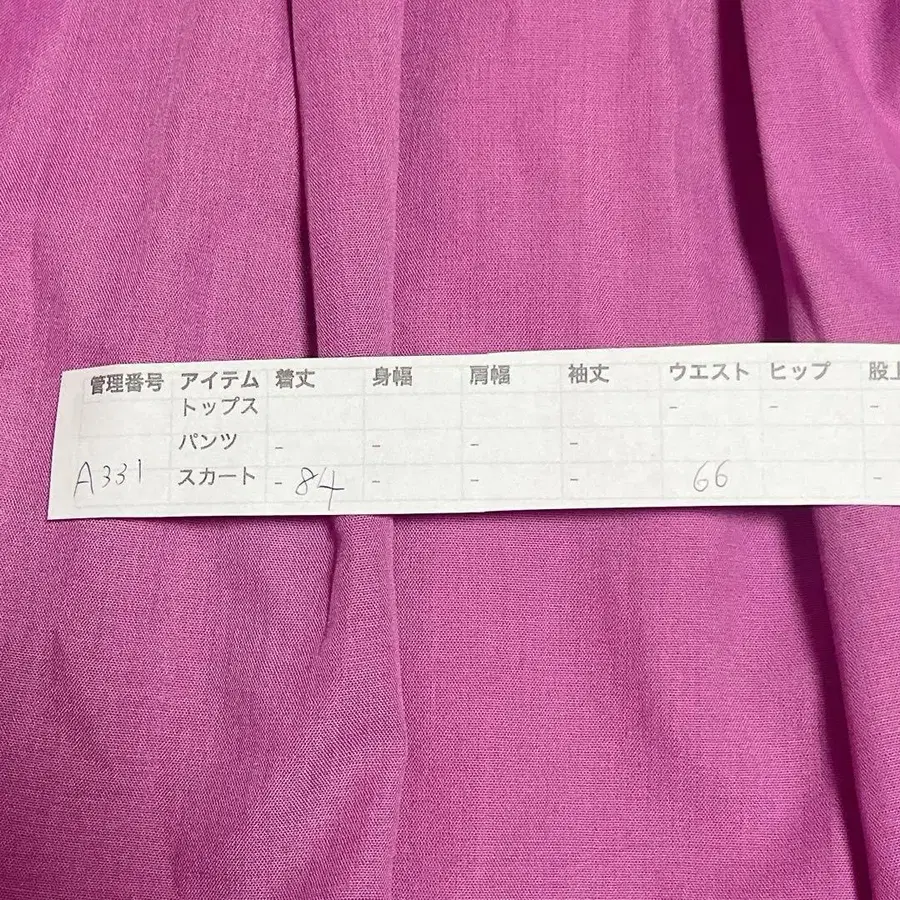 管理番号 アイテム 着丈 身幅 肩幅 袖丈 ウエスト ヒップ 股上
トップス - - -
パンツ - - - -
A331 スカート - 84 - - - 66 -